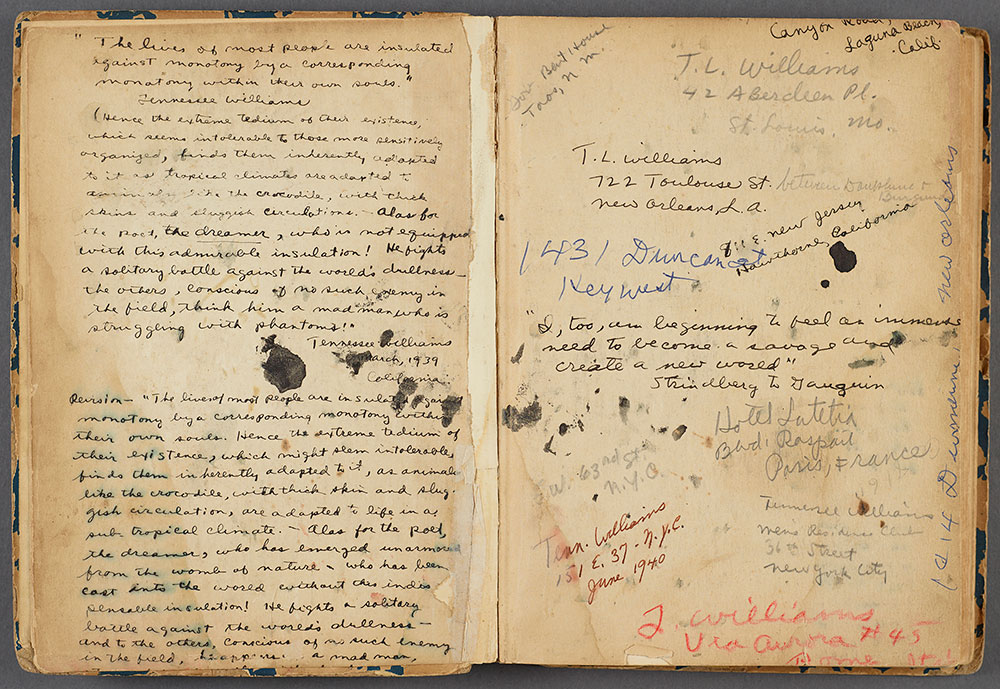 "The lives of most people are insulated
against monotony by a corresponding
monotony within their own souls."
Tennessee Williams
(Hence the extreme tedium of their existence,
which seems intolerable to those more sensitively
organized, finds them inherently adapted
to it as tropical climates are adapted to
animals like the crocodile, with thick
skins and sluggish circulations. — Alas for
the poet, the dreamer, who is not equipped
with this admirable insulation! He fights
a solitary battle against the world's dullness —
the others, conscious of no such enemy in
the field, think him a mad man who is
struggling with phantoms!"
Tennessee Williams
March, 1939
California
Revision — "The lives of most people are insulated against
monotony by a corresponding monotony within
their own souls. Hence the extreme tedium of
their existence, which might seem intolerable,
finds them inherently adapted to it, as animals
like the crocodile, with thick skin and slug-
gish circulation, are adapted to life in a
sub tropical climate. — Alas for the poet,
the dreamer, who has emerged unarmored
from the womb of nature — who has been
cast into the world without this indis
pensable insulation! He fights a solitary
battle against the world's dullness —
and to the others, conscious of no such enemy
in the field, he appears a mad man,
Canyon Road,
Laguna Beach,
Calif.
House
Taos, N. M.
T. L. Williams
42 Aberdeen Pl.
St. Louis, Mo.
T. L. Williams
722 Toulouse St. between Dauphine &
New Orleans, La.
911 E. New Jersey
Hawthorne, California
1431 Duncan st
Key West
"I, too, am beginning to feel an immense
need to become a savage and
create a new world"
Strindberg to Gauguin
Hotel Lutetia
Blvd. Raspail
Paris, France
W. 63rd St.
N.Y.C.
Tennessee Williams
Mens Residence Club
56th Street
New York City
Tenn. Williams
151 E. 37 - N.Y.C.
June 1940
T. Williams
Via Aurora #45
Rome
1014 Dumaine New Orleans